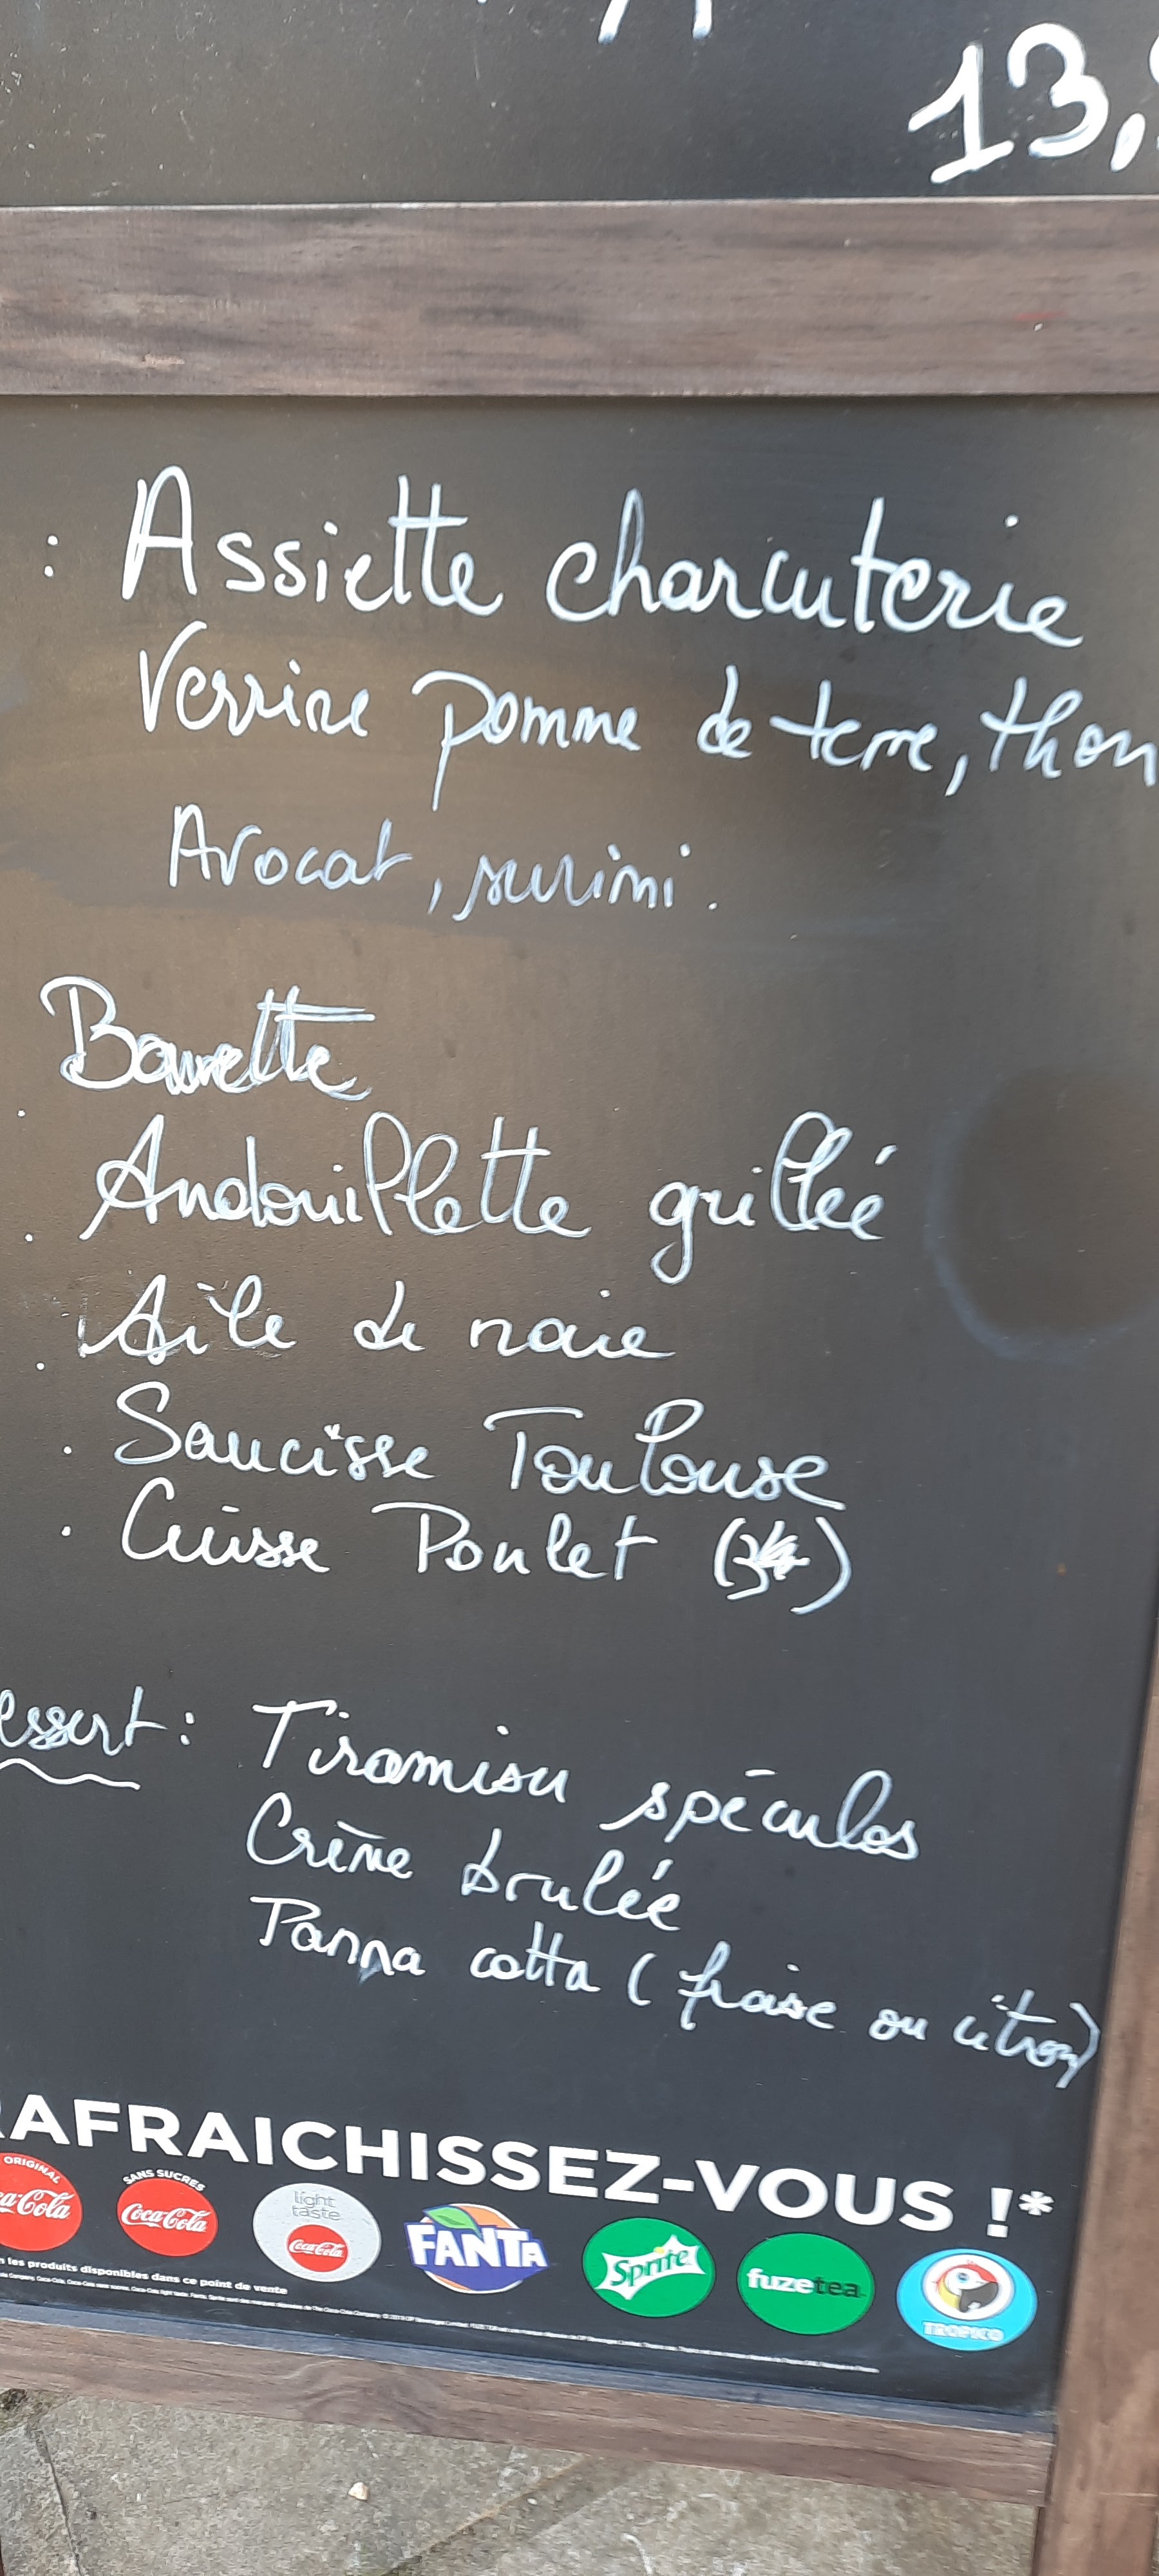 13,
: Assiette charcuterie
Verrine pomme de terre, thon
Avocat, surimi.
Bavette
. Andouillette grillée
. Aile de raie
. Saucisse Toulouse
. Cuisse Poulet
essert : Tiramisu spéculos
Crème brulée
Panna cotta (fraise ou citron)
RAFRAICHISSEZ-VOUS !*
ORIGINAL
ca-Cola
SANS SUCRES
Coca-Cola
light taste
Coca-Cola
FANTA
Sprite
fuzetea
TROPICO
les produits disponibles dans ce point de vente